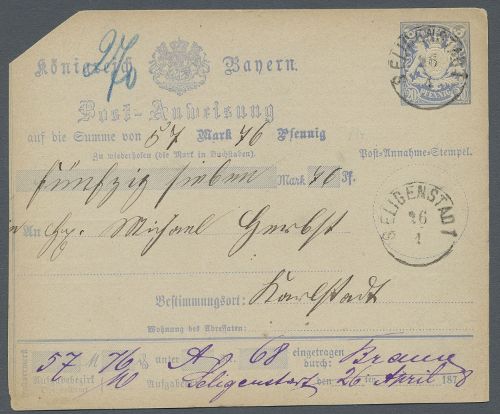 27/6
Königreich Bayern.
SELIGENSTADT
26
PFENNIG
Post-Anweisung
auf die Summe von 57 Mark 76 Pfennig
Zu wiederholen (die Mark in Buchstaben).
Post-Annahme-Stempel.
fünfzig sieben Mark 76 Pf.
An Hr. Michael Herbst
SELIGENSTADT
26
4
Bestimmungsort: Karlstadt
Wohnung des Adressaten:
57 M 76 unter A 68 eingetragen durch: Braun
Aufgabe Seligenstadt den 26 April 1878